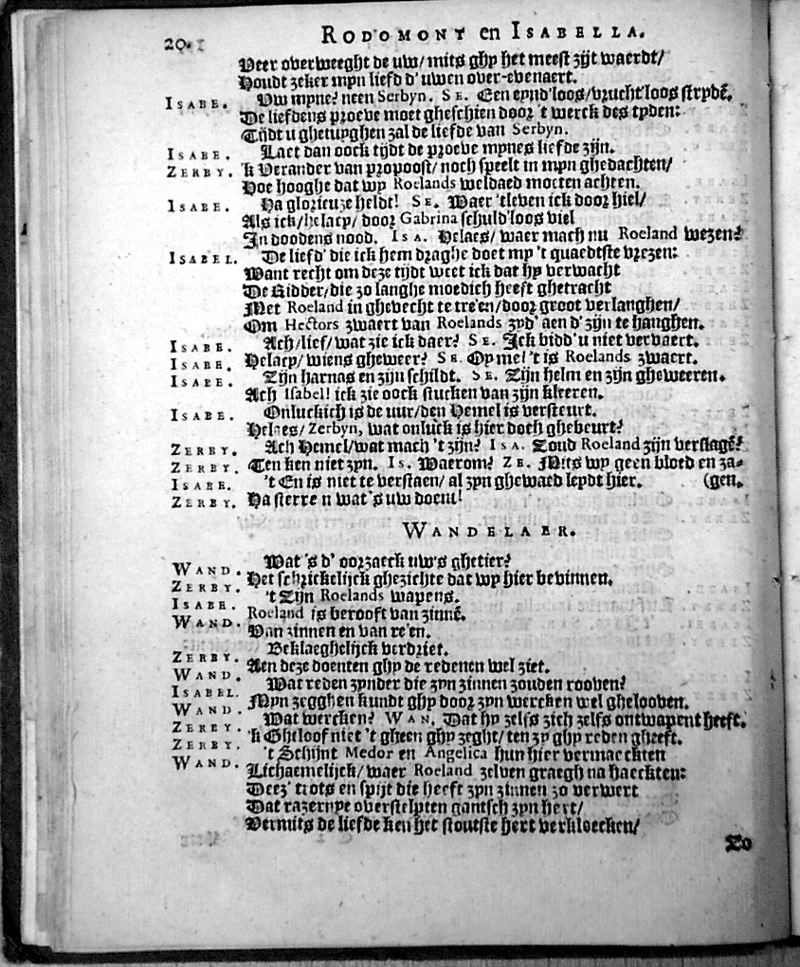 20. RODOMONT en ISABELLA.
Veer overweeght de uw/ mits ghy het meest zijt waerdt/
Houdt zeker mijn liefd d'uwen over-evenaert.
ISABE. Uw mijne? neen Serbyn. SE. Een eynd'loos/vrucht'loos strydē.
De liefdens proeve moet gheschien door 't werck des tyden:
Tijdt u ghetuyghen zal de liefde van Serbyn.
ISABE. Laet dan oock tijdt de proeve mynes liefde zijn.
ZERBY. 'k Verander van propoost/ noch speelt in mijn ghedachten/
Hoe hooghe dat wy Roelands weldaed moeten achten.
ISABE. Ha glorieuze heldt! SE. Waer 'tleven ick door hiel/
Als ick/helacy/ door Gabrina schuld'loos viel
In doodens nood. ISA. Helaes/ waer mach nu Roeland wezen?
ISABEL. De liefd' die ick hem draghe doet my 't quaedtste vrezen:
Want recht om deze tijdt weet ick dat hy verwacht
De Ridder/die zo langhe moedich heeft ghetracht
Met Roeland in ghevecht te tre'en/door groot verlanghen/
Om Hectors zwaert van Roelands zyd' aen d'zijn te hanghen.
ISABE. Ach/lief/ wat zie ick daer? SE. Ick bidd'u niet vervaert.
ISABE. Helacy/ wiens gheweer? SE. Op mel 't is Roelands zwaert.
ISABE. Zijn harnas en zijn schildt. SE. Zijn helm en zijn gheweeren.
Ach Isabel! ick zie oock stucken van zijn kleeren.
ISABE. Onluckich is de uur/den Hemel is versteurt.
Helaes/ Zerbyn, wat onluck is hier doch ghebeurt?
ZERBY. Ach Hemel/wat mach 't zijn? ISA. Zoud Roeland zijn verslagē?
ZERBY. Ten ken niet zyn. IS. Waerom? ZE. Mits wy geen bloed en za-
ISABE. 't En is niet te verstaen/ al zyn ghewaed leydt hier. (gen.
ZERBY. Ha sterre n wat's uw doent!
WANDELAER.
WAND. Wat 's d' oorzaeck uw's ghetier?
ZERBY. Het schrickelijck ghezichte dat wy hier bevinnen.
ISABE. 't Zijn Roelands wapens.
WAND. Roeland is berooft van zinnē.
Van zinnen en van re'en.
ZERBY. Beklaeghelijck verdriet.
WAND. Aen deze doenten ghy de redenen wel ziet.
ISABEL. Wat reden zynder die zyn zinnen zouden rooven?
WAND. Myn zegghen kundt ghy door zyn wercken wel ghelooven.
ZERBY. Wat wercken? WAN. Dat hy zelfs zich zelfs ontwapent heeft.
ZERBY. 'k Gheloof niet 't gheen ghy zeght/ ten zy ghy reden gheeft.
WAND. 't Schijnt Medor en Angelica hun hier vermaeckten
Lichaemelijck/ waer Roeland zelven graegh na haeckten:
Deez' trots en spijt die heeft zyn zinnen zo verwert
Dat razernye overstelpten gantsch zyn hert/
Vermits de liefde ken het stoutste hert verkloecken/
Zo